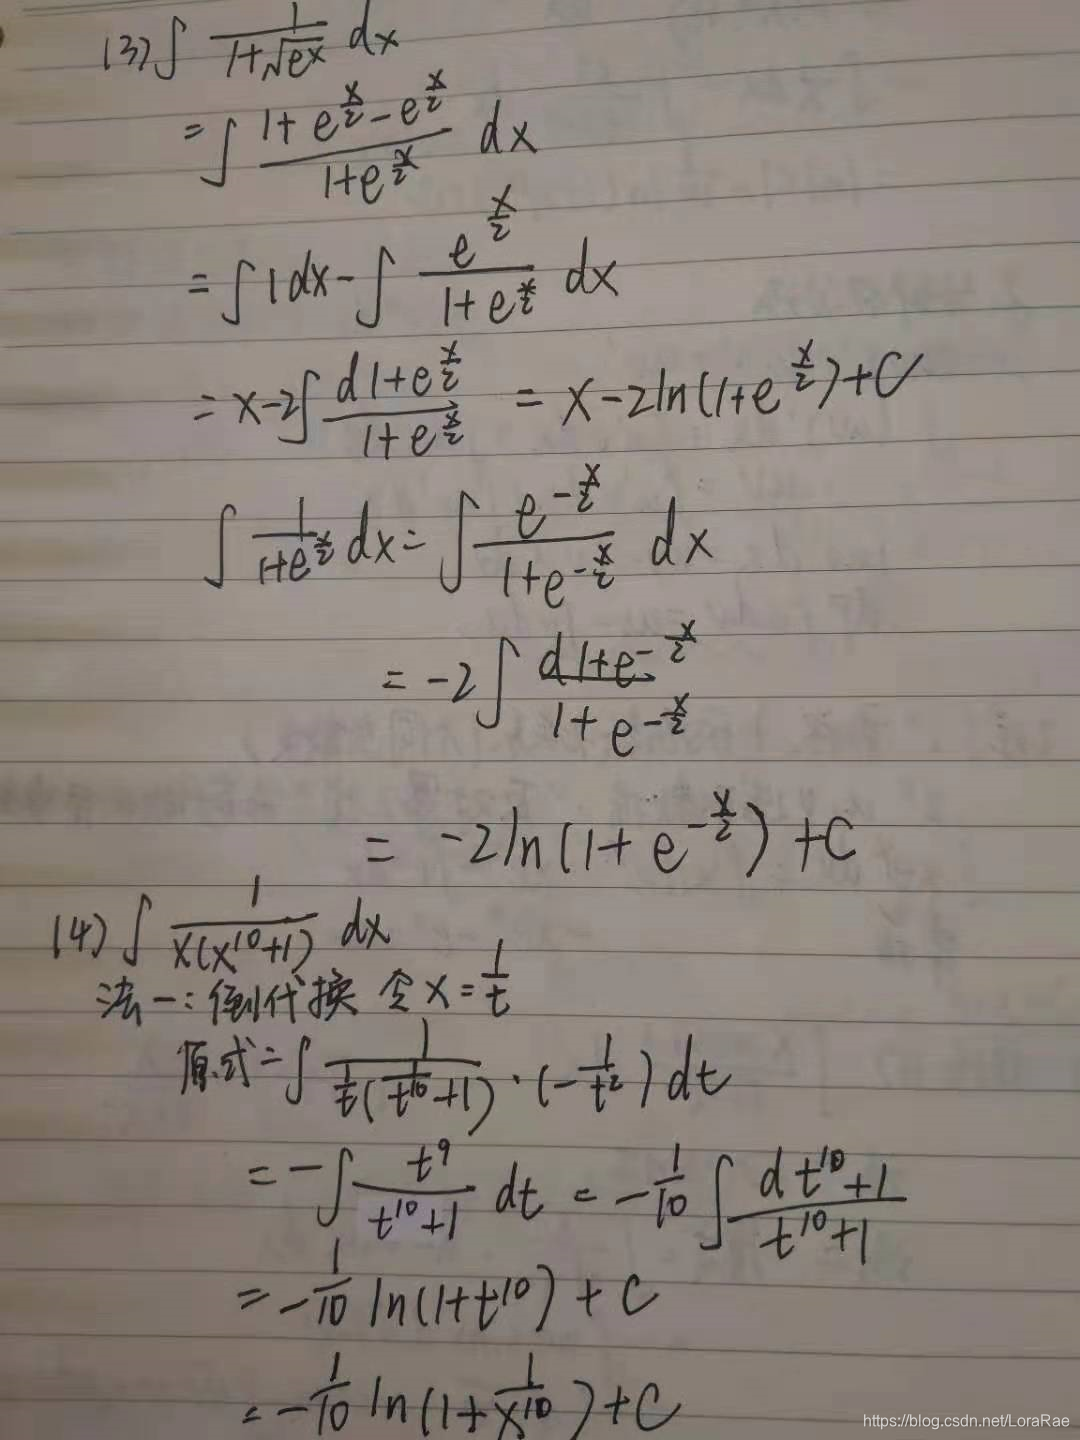 (3) ∫ 1/(1+√e^x) dx
= ∫ (1+e^(x/2)-e^(x/2))/(1+e^(x/2)) dx
= ∫ 1dx - ∫ e^(x/2)/(1+e^(x/2)) dx
= x-2∫ (d 1+e^(x/2))/(1+e^(x/2)) = x-2ln(1+e^(x/2))+C
∫ 1/(1+e^(x/2)) dx = ∫ e^(-x/2)/(1+e^(-x/2)) dx
= -2 ∫ (d 1+e^(-x/2))/(1+e^(-x/2))
= -2ln(1+e^(-x/2))+C
(4) ∫ 1/(x(x^10+1)) dx
法一:倒代换 令 x=1/t
原式=∫ 1/(1/t(1/t^10+1)) · (-1/t^2) dt
= -∫ t^9/(t^10+1) dt = -1/10 ∫ (d t^10+1)/(t^10+1)
= -1/10 ln(1+t^10)+C
= -1/10 ln(1+1/x^10)+C
https://blog.csdn.net/LoraRae